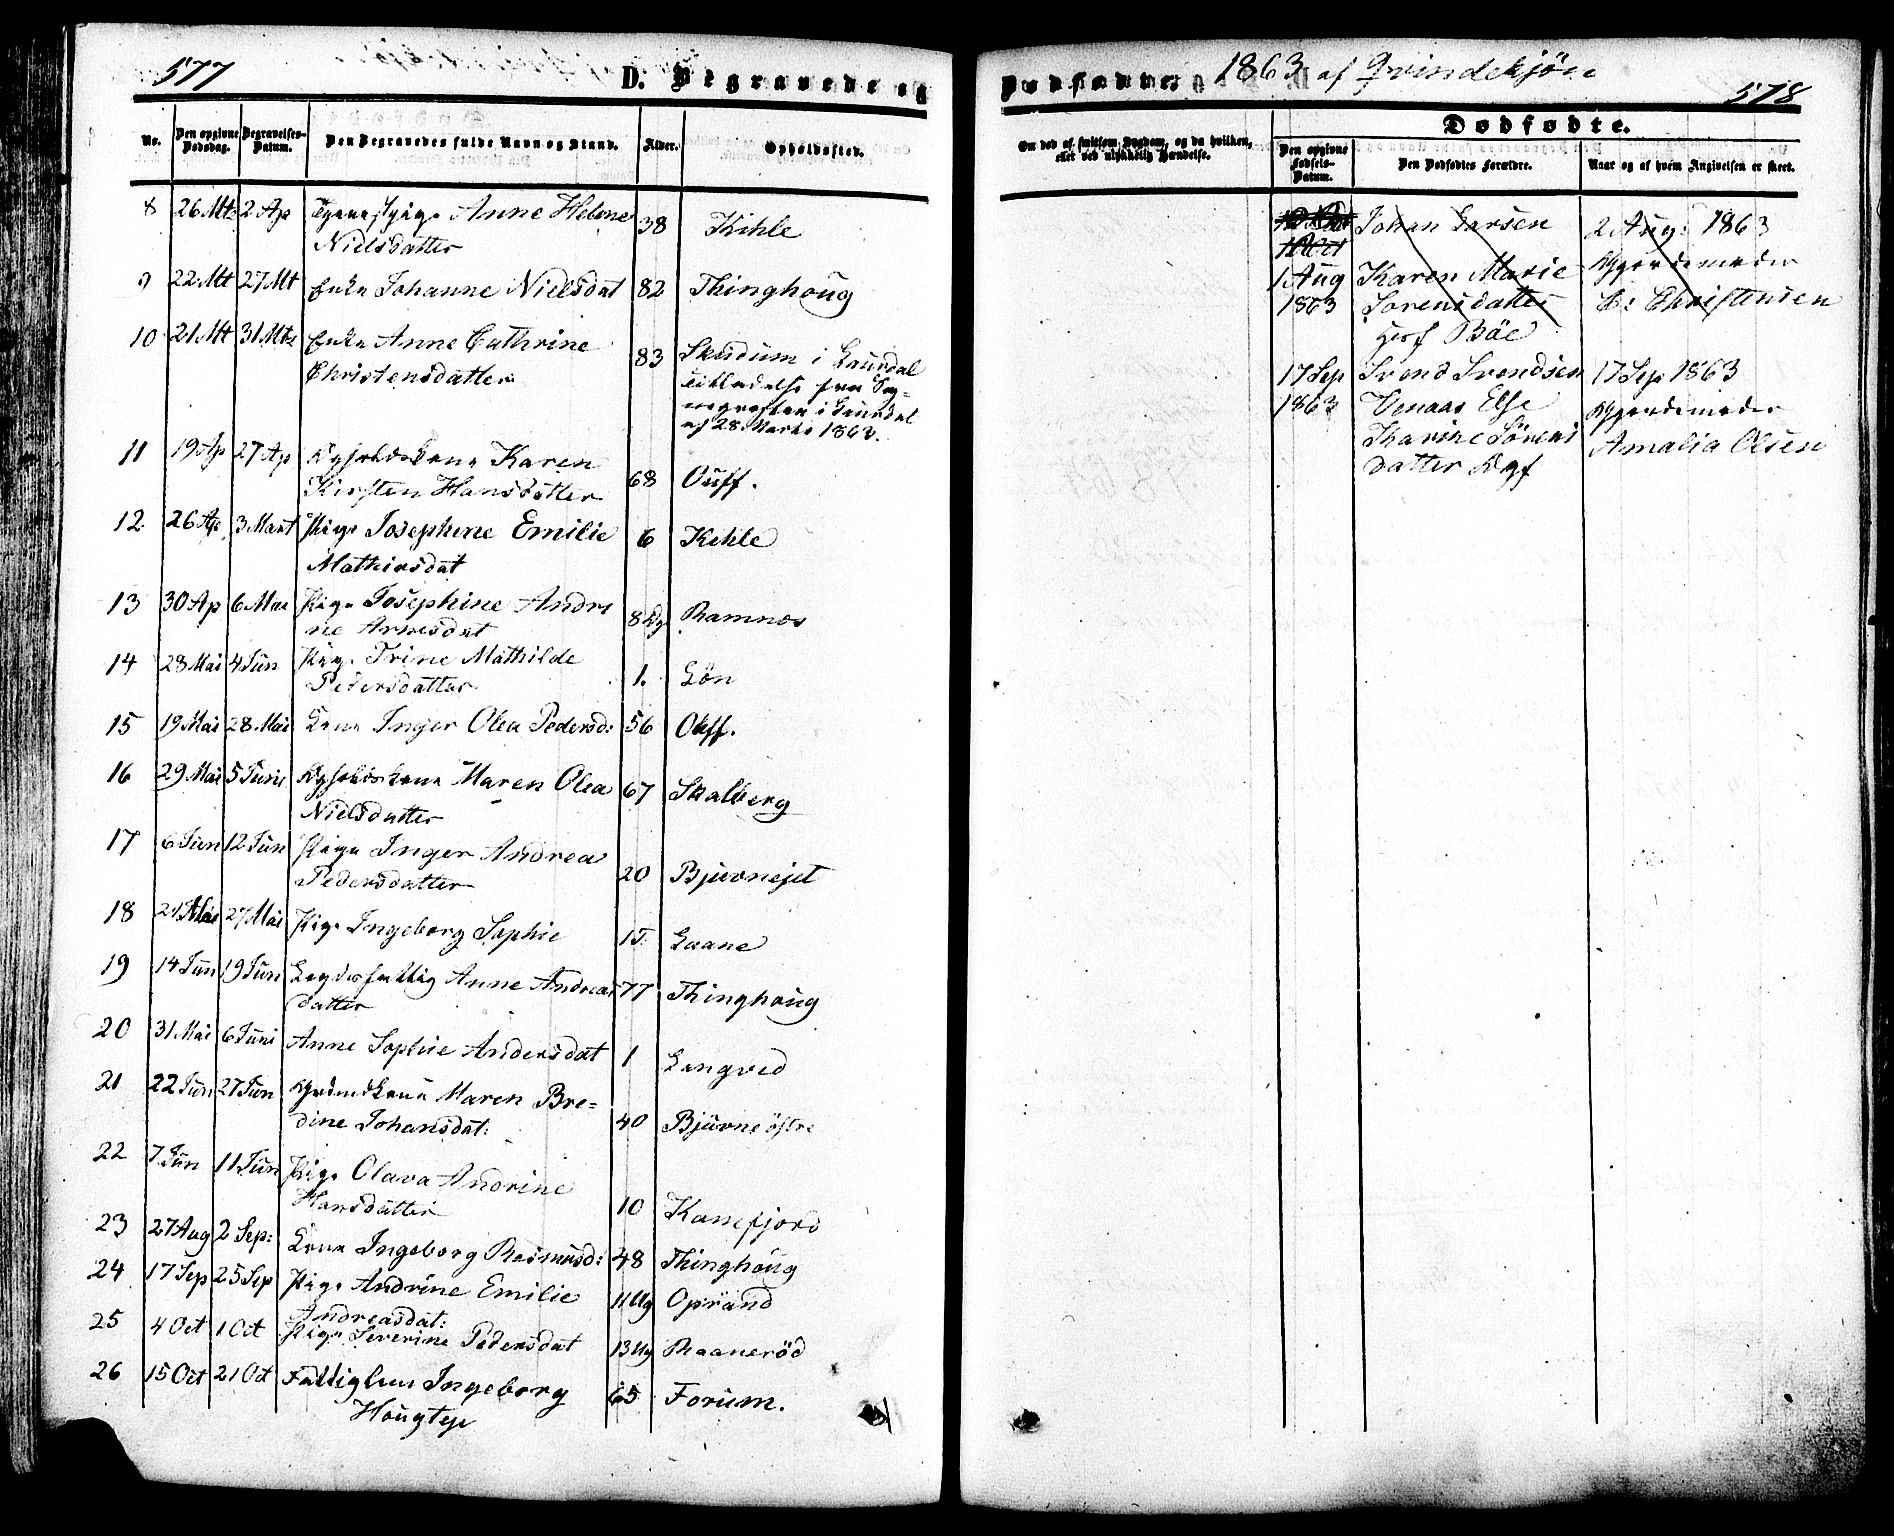 577
D. Begravede og
No.
Den opgivne Dødsdag.
Begravelses-Datum.
Den Begravedes fulde Navn og Stand.
Alder.
Opholdssted.
8 26 Mts 2 Ap Anne Helene 38 Kihle
Nielsdatter
9 22 Mt 27 Mt Enke Johanne Nielsdat 82 Thinghoug
10 21 Mt 31 Mts Enke Anne Cathrine 83 i Laurdal
Christensdatter
af 28 Marts 1863.
11 19 Ap 27 Ap Karen 68 Ouff.
Kirsten Hansdatter
12 26 Ap 3 Pige Josephine Emilie 6 Kehle
Mathiesdat
13 30 Ap 6 Mai Pige Josephine Andri 8 Dg Ramnes
ne Arnesdat
14 28 Mai 4 Jun Pige Trine Mathilde 1. Løn
Pedersdatter
15 19 Mai 28 Mai Kone Inger Olea Pedersd: 56 Ouff.
16 29 Mai 5 Juni Maren Olea 67 Skalberg
Nielsdatter
17 6 Jun 12 Jun Pige Inger Andrea 20
Pedersdatter
18 27 Mai Pige Ingeborg Sophie 15 Laane
19 14 Jun 19 Jun Lægdsfattig Anne Andreas 77 Thinghoug
datter
20 31 Mai 6 Juni Anne Sophie Andersdat 1 Langved
21 22 Jun 27 Jun Maren Bre= 40 Bjuvne østre
dine Johansdat:
22 7 Jun 11 Jun Pige Olava Andrine 10 Kanefjord
Hansdatter
23 27 Aug 2 Sep: Kone Ingeborg Rasmusd: 48 Thinghoug
24 17 Sep 25 Sep Pige Andrine Emilie 11 Ug Oprand
Andreasdat:
25 4 Oct 1 Oct Pige Severine Pedersdat 13 Ug Raanerød
26 15 Oct 21 Oct Fattiglem Ingeborg 65 Forum.
1863 af Qvindekjøn
578
Dødfødte.
Om død af smitsom Sygdom, og da hvilken,
eller ved ulykkelig Hændelse.
Den opgivne Fødsels-Datum.
Den Dødfødtes Forældre.
Naar og af hvem Angivelsen er skeet.
Johan Larsen 2 Aug: 1863
1 Aug Karen Marie Gjordemoder
1863 Sorensdatter C: Christensen
Bøe
17 Sep Svend Svendsen 17 Sep 1863
1863 Venaas Else Gjordemoder
Karine Sørens Amalia Olsen
datter